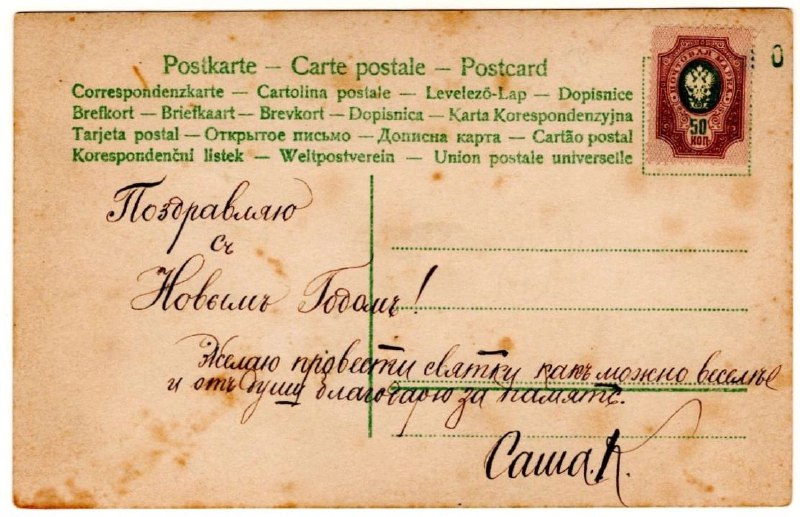 Postkarte – Carte postale – Postcard
Correspondenzkarte – Cartolina postale – Levelező-Lap – Dopisnice
Brefkort – Briefkaart – Brevkort – Dopisnica – Karta Korespondenzyjna
Tarjeta postal – Открытое письмо – Дописна карта – Cartão postal
Korespondenční listek – Weltpostverein – Union postale universelle
ПОЧТОВАЯ МАРКА
50
КОП
0
Поздравляю
съ
Новымъ Годомъ!
Желаю провести святки какъ можно веселѣе
и отъ души благодарю за память.
Саша.К.